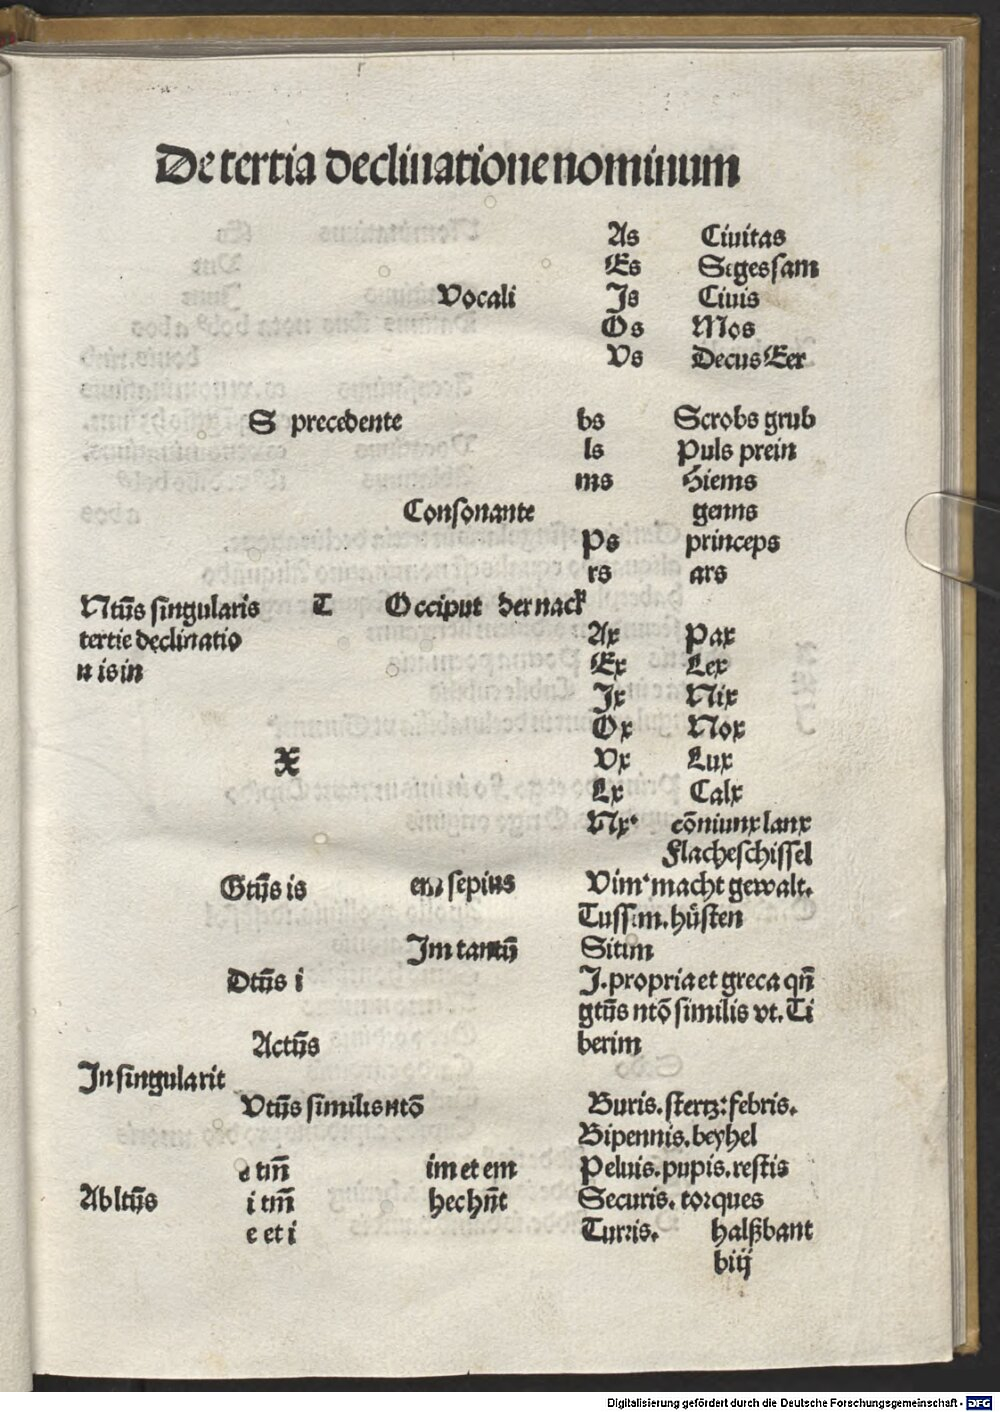 De tertia declinatione nominum
As Ciuitas
Es Seges sam
Vocali Is Ciuis
Os Mos
Vs Decus Eer
S precedente bs Scrobs grub
ls Puls prein
ms Hiems
Consonante genns
Ps princeps
rs ars
Ntūs singularis T Occiput der nack
tertie declinatio Ax Pax
n is in Ex Lex
Ix Nix
Ox Nox
X Vx Lux
Lx Calx
Nx cōniunx lanx
Flacheschissel
Gtūs is em sepius Vim macht gewalt.
Tussim. hůsten
Im tantū Sitim
Dtūs i I. propria et greca qn̄
gtūs ntō similis vt. Ti
Actūs berim
In singularit
Vtūs similis ntō Buris. stertz: febris.
Bipennis. beyhel
e tm̄ im et em Peluis. pupis. restis
Abltūs i tm̄ hec hn̄t Securis. torques
e et i Turris. halßbant
biij
Digitalisierung gefördert durch die Deutsche Forschungsgemeinschaft - DFG